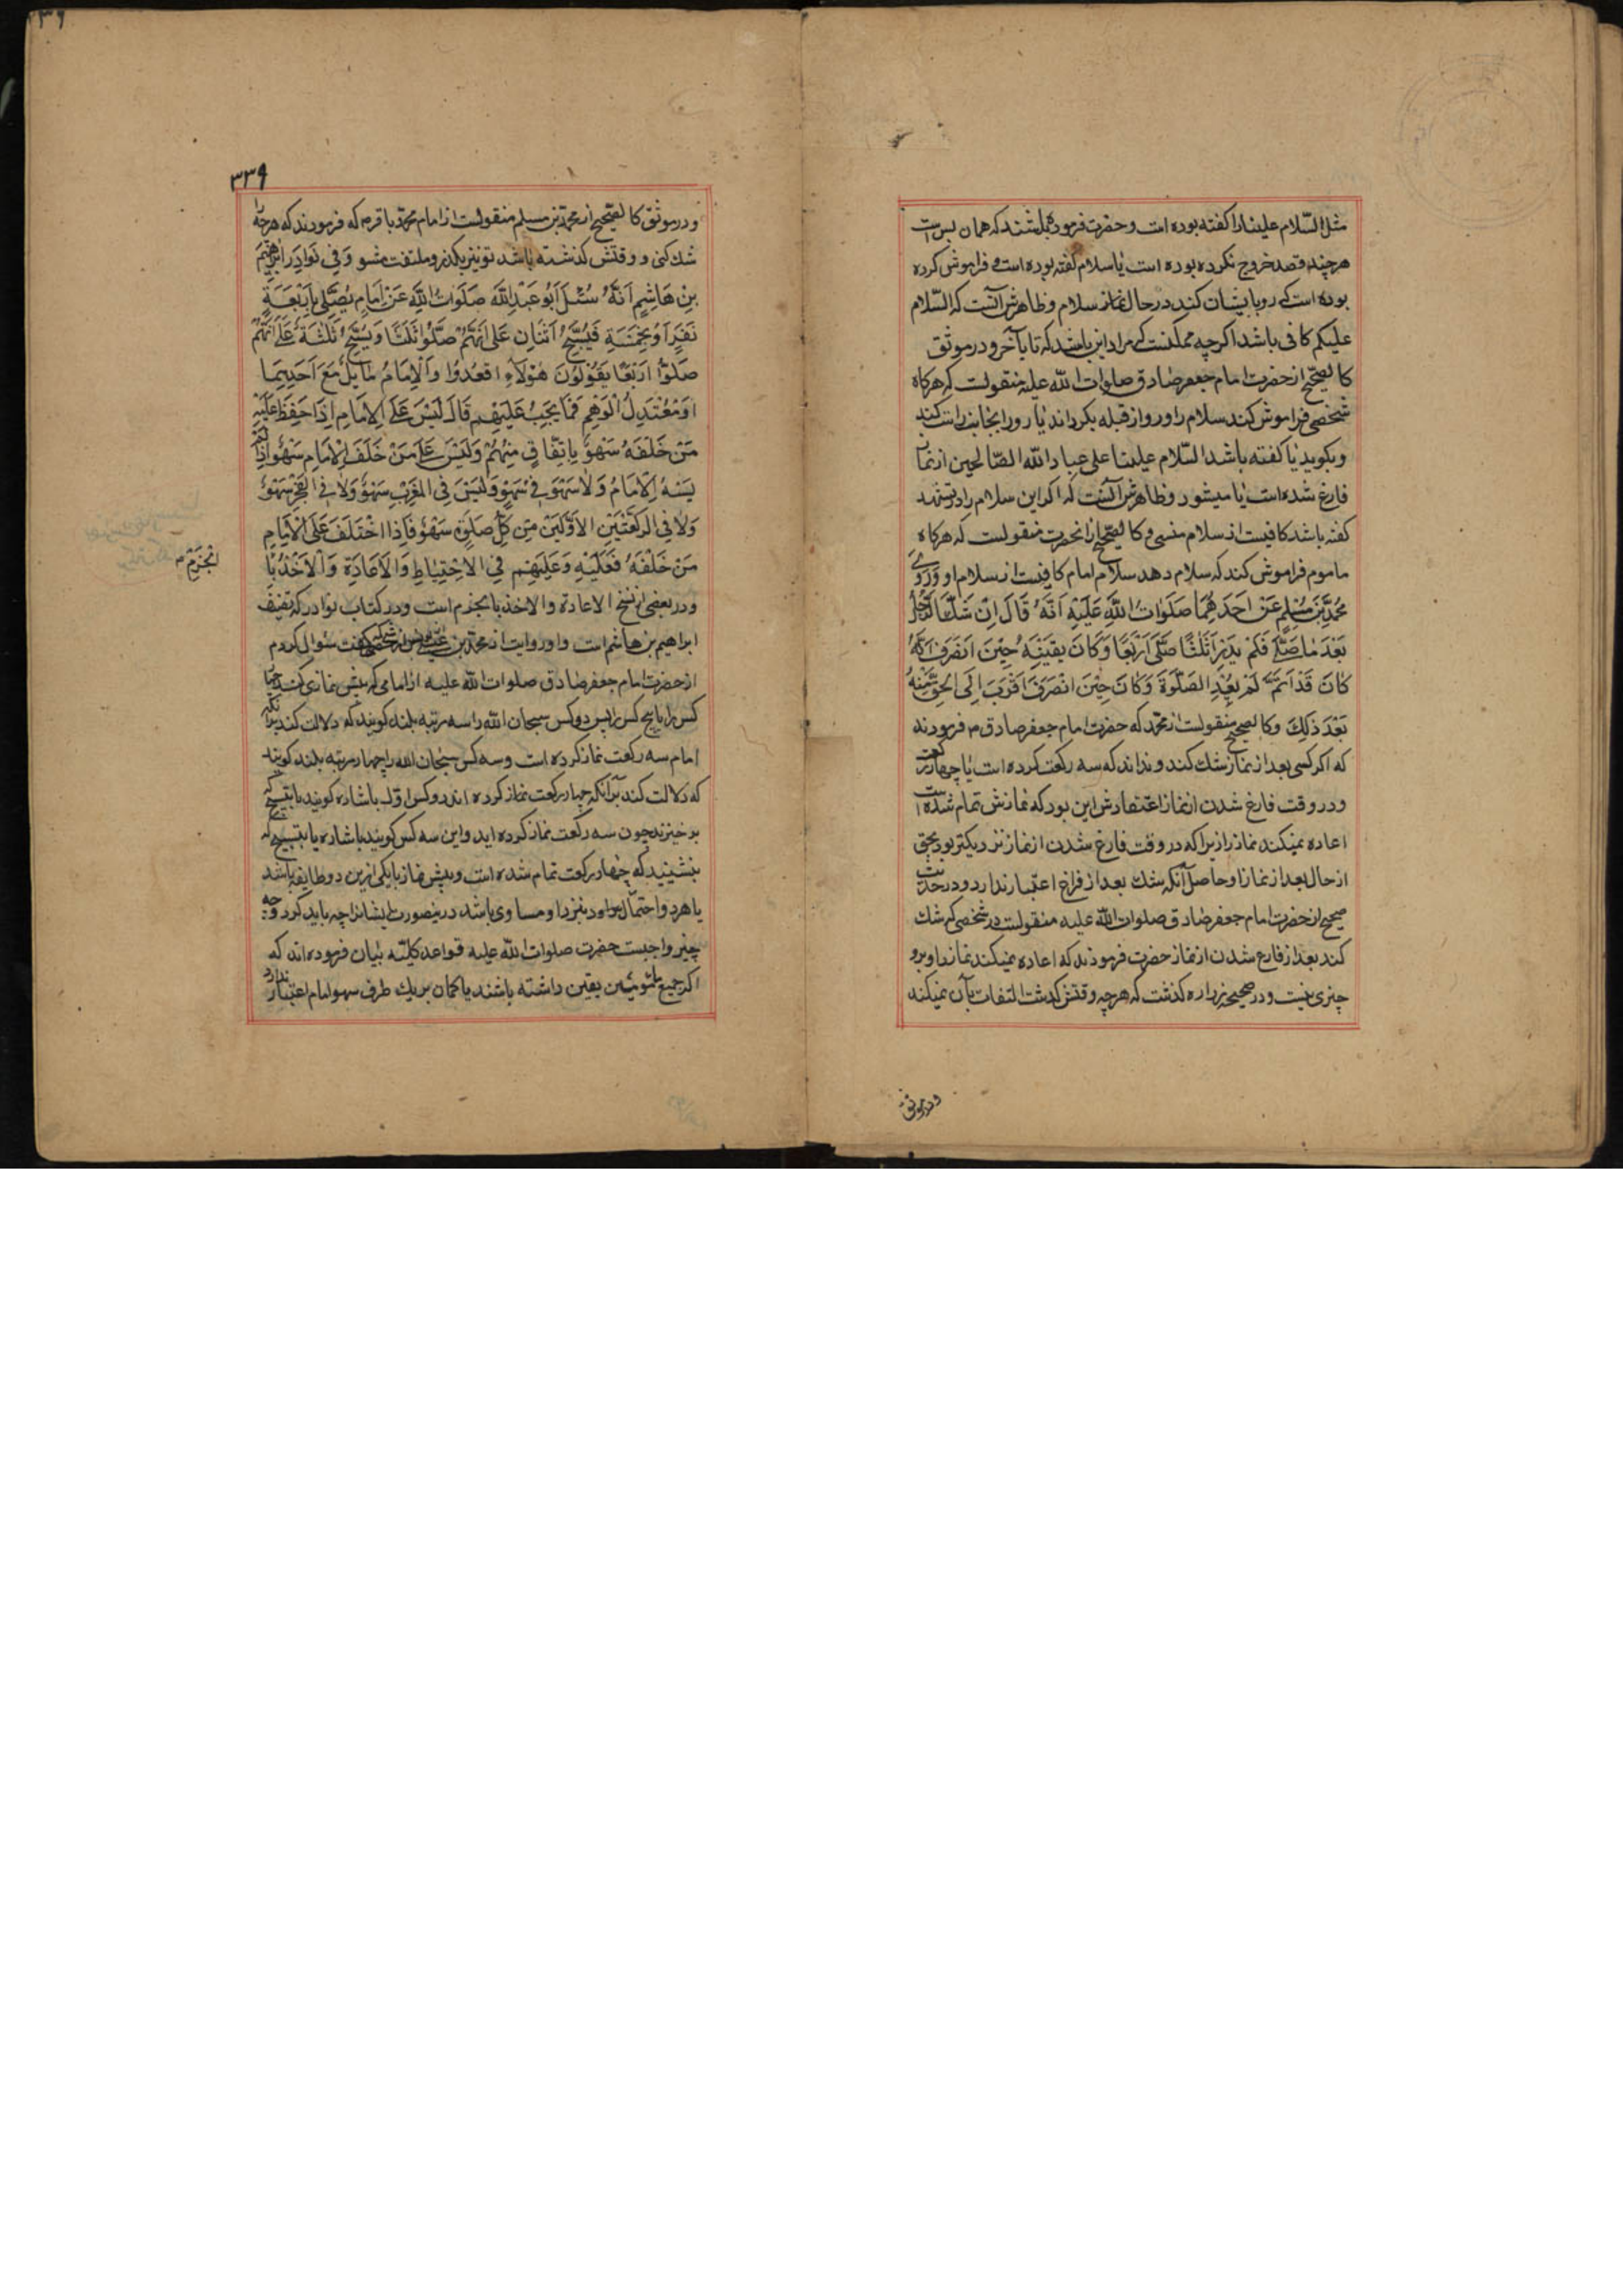 مثل السّلام علینا را کفته بوده است و حضرت فرموده باشند که همان بس است
هرچند قصد خروج نکرده بوده است یا سلام کفته بوده است و فراموش کرده
بوده است که رو بایشان کند در حال نماز سلام و ظاهرش آنست که السّلام
علیکم کافی باشد اکرچه ممکنست که مراد این باشد که تا بآخر و در موثق
کالصّحیح از حضرت امام جعفر صادق صلوات الله علیه منقولست که هرکاه
شخصی فراموش کند سلام را و رو از قبله بکرداند یا رو را بجانب راست کند
و بکوید یا کفته باشد السّلام علینا و علی عباد الله الصّالحین از نماز
فارغ شده است یا میشود و ظاهرش آنست که اکر این سلام را در تشهد
کفته باشد کافیست از سلام منسی و کالصّحیح از انحضرت منقولست که هرکاه
ماموم فراموش کند که سلام دهد سلام امام کافیست از سلام او وَرَوٰی
مُحَمَّدُ بْنُ مُسْلِمٍ عَنْ اَحَدِهِمٰا صَلَوٰاتُ اللّٰهِ عَلَیْهِ اَنَّهُ قٰالَ اِنْ شَكَّ الرَّجُلُ
بَعْدَ مٰا صَلّٰی فَلَمْ یَدْرِ اَثَلٰثًا صَلّٰی اَرْبَعًا وَکٰانَ یَقینُهُ حِیْنَ انْصَرَفَ اَنَّهُ
کٰانَ قَدْ اَتَمَّ لَمْ یُعِدِ الصَّلٰوةَ وَکٰانَ حِیْنَ انْصَرَفَ اَقْرَبَ اِلَی الْحَقِّ مِنْهُ
بَعْدَ ذٰلِكَ و کالصحیح منقولست از محمّد که حضرت امام جعفر صادق ع فرمودند
که اکر کسی بعد از نماز شك کند و نداند که سه رکعت کرده است یا چهار رکعت
و در وقت فارغ شدن از نماز اعتقادش این بود که نمازش تمام شده است
اعاده نمیکند نماز را زیرا که در وقت فارغ شدن از نماز نزدیکتر بود بحق
از حال بعد از نماز و حاصل آنکه شك بعد از فراغ اعتبار ندارد و در حدیث
صحیح از حضرت امام جعفر صادق صلوات الله علیه منقولست در شخصی که شك
کند بعد از فارغ شدن از نماز حضرت فرمودند که اعاده نمیکند نماز را و برو
چیزی نیست و در صحیحه زراره کذشت که هرچه وقتش کذشت التفات بآن نمیکند
و در موثق
۳۳۹
و در موثق کالصّحیح از محمّد بن مسلم منقولست از امام محمّد باقر ع که فرمودند که هرچه را
شك کنی و وقتش کذشته باشد تو نیز بکذر و ملتفت مشو وَفِی نَوٰادِرِ اِبْرٰهِیْمَ
بْنِ هٰاشِمٍ اَنَّهُ سُئِلَ اَبُو عَبْدِ اللّٰهِ صَلَوٰاتُ اللّٰهِ عَنْ اِمٰامٍ یُصَلّی بِاَرْبَعَةِ
نَفَرٍ اَوْ بِخَمْسَةٍ فَیُسَبِّحُ اثْنٰانِ عَلٰی اَنَّهُمْ صَلَّوْا ثَلٰثًا وَیُسَبِّحُ ثَلٰثَةٌ عَلٰی اَنَّهُمْ
صَلَّوْا اَرْبَعًا یَقُوْلُوْنَ هٰؤُلٰآءِ اقْعُدُوْا وَالْاِمٰامُ مٰایِلٌ مَعَ اَحَدِهِمٰا
اَوْ مُعْتَدِلُ الْوَهْمِ فَمٰا یَجِبُ عَلَیْهِمْ قٰالَ لَیْسَ عَلَی الْاِمٰامِ اِذٰا حَفِظَ عَلَیْهِ
مَنْ خَلْفَهُ سَهْوٌ بِاتِّفٰاقٍ مِنْهُمْ وَلَیْسَ عَلٰی مَنْ خَلْفَ الْاِمٰامِ سَهْوٌ اِذٰا لَمْ
یَسْهُ الْاِمٰامُ وَلٰا سَهْوَ فِی سَهْوٍ وَلَیْسَ فِی الْمَغْرِبِ سَهْوٌ وَلٰا فِی الْفَجْرِ سَهْوٌ
وَلٰا فِی الرَّکْعَتَیْنِ الْاَوَّلَتَیْنِ مِنْ کُلِّ صَلٰوةٍ سَهْوٌ فَاِذَا اخْتَلَفَ عَلَی الْاِمٰامِ
مَنْ خَلْفَهُ فَعَلَیْهِ وَعَلَیْهِمْ فِی الْاِحْتِیٰاطِ وَالْاِعٰادَةِ وَالْاَخْذِ بِا
لْجَزْمِ
و در بعضی از نسخ الاعادة و الاخذ بالجزم است و در کتاب نوادر که تصنیف
ابراهیم بن هاشم است و او روایت از محمّد بن عیسی کفت سؤال کردم
از حضرت امام جعفر صادق صلوات الله علیه از امامی که پیش نمازی کند چهار
کس را یا پنج کس را پس دو کس سبحان الله را سه مرتبه بلند کویند که دلالت کند برانکه
امام سه رکعت نماز کرده است و سه کس سبحان الله را چهار مرتبه بلند کویند
که دلالت کند برآنکه چهار رکعت نماز کرده اند و کس اوّل باشاره کویند یا بتسبیح که
برخیزید چون سه رکعت نماز کرده اید و این سه کس کویند باشاره یا بتسبیح که
بنشینید که چهار رکعت تمام شده است و پیش نماز با یکی ازین دو طایفه باشد
یا هر دو احتمال نزد او مساوی باشد درینصورت ایشانرا چه باید کرد و چه
چیز واجبست حضرت صلوات الله علیه قواعد کلیّه بیان فرموده اند که
اکر جمیع مامومین یقین داشته باشند یا کمان بریك طرف سهو امام اعتبار ندارد